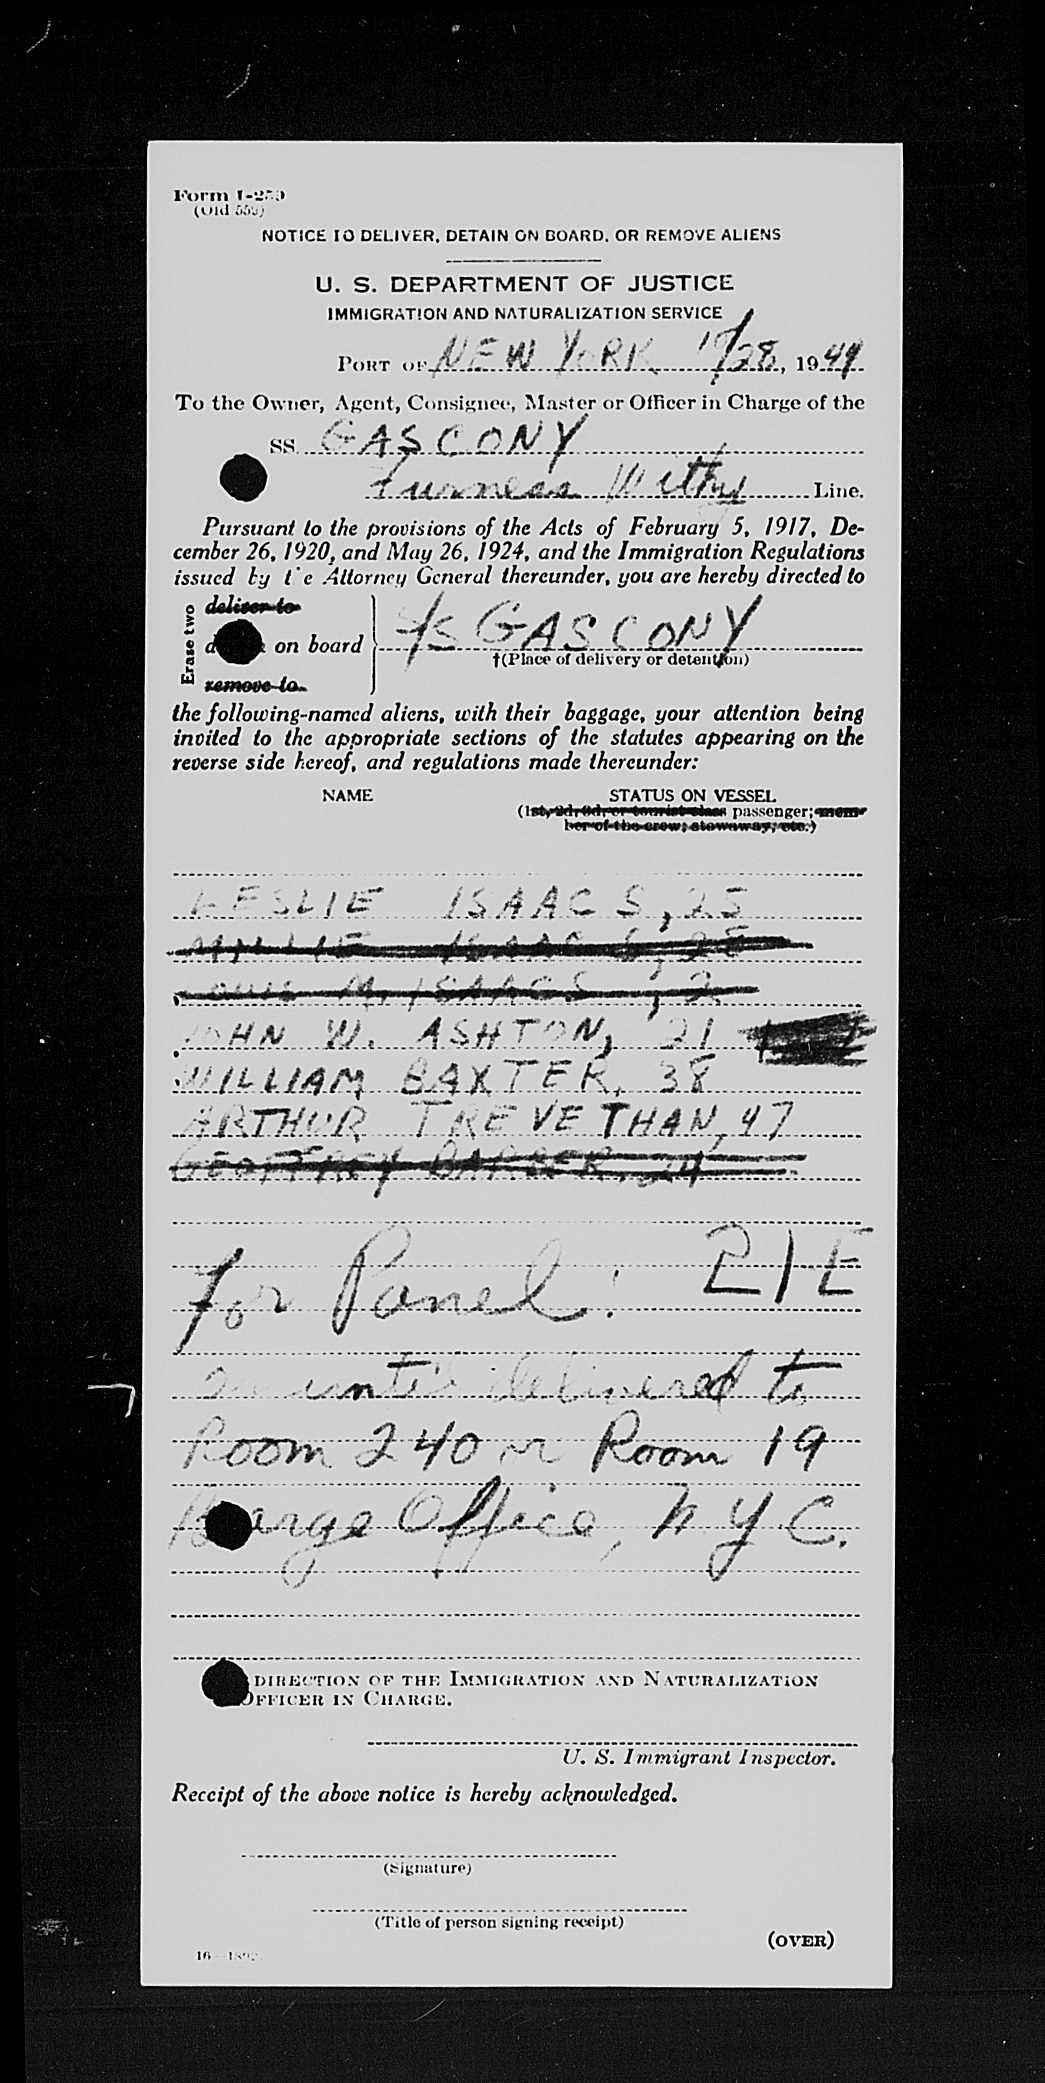 Form I-259
(Old 559)
NOTICE TO DELIVER, DETAIN ON BOARD, OR REMOVE ALIENS
U. S. DEPARTMENT OF JUSTICE
IMMIGRATION AND NATURALIZATION SERVICE
PORT OF NEW YORK 10/28, 1944
To the Owner, Agent, Consignee, Master or Officer in Charge of the
SS. GASCONY
Furness Withy Line.
Pursuant to the provisions of the Acts of February 5, 1917, De-
cember 26, 1920, and May 26, 1924, and the Immigration Regulations
issued by the Attorney General thereunder, you are hereby directed to
Erase two
deliver to
on board
remove to
S/S GASCONY
†(Place of delivery or detention)
the following-named aliens, with their baggage, your attention being
invited to the appropriate sections of the statutes appearing on the
reverse side hereof, and regulations made thereunder:
NAME STATUS ON VESSEL
(1st, 2d, 3d, or tourist class passenger; mem-
ber of the crew; stowaway; etc.)
LESLIE ISAACS, 25
MILLIE ISAACS, 28
LOUIS M. ISAACS, 2
JOHN W. ASHTON, 21
WILLIAM BAXTER, 38
ARTHUR TREVETHAN, 47
GEOFFREY BARBER, 24
for Panel: 21E
until delivered to
Room 240 or Room 19
Barge Office, N Y C.
DIRECTION OF THE IMMIGRATION AND NATURALIZATION
OFFICER IN CHARGE.
U. S. Immigrant Inspector.
Receipt of the above notice is hereby acknowledged.
(Signature)
(Title of person signing receipt)
(OVER)